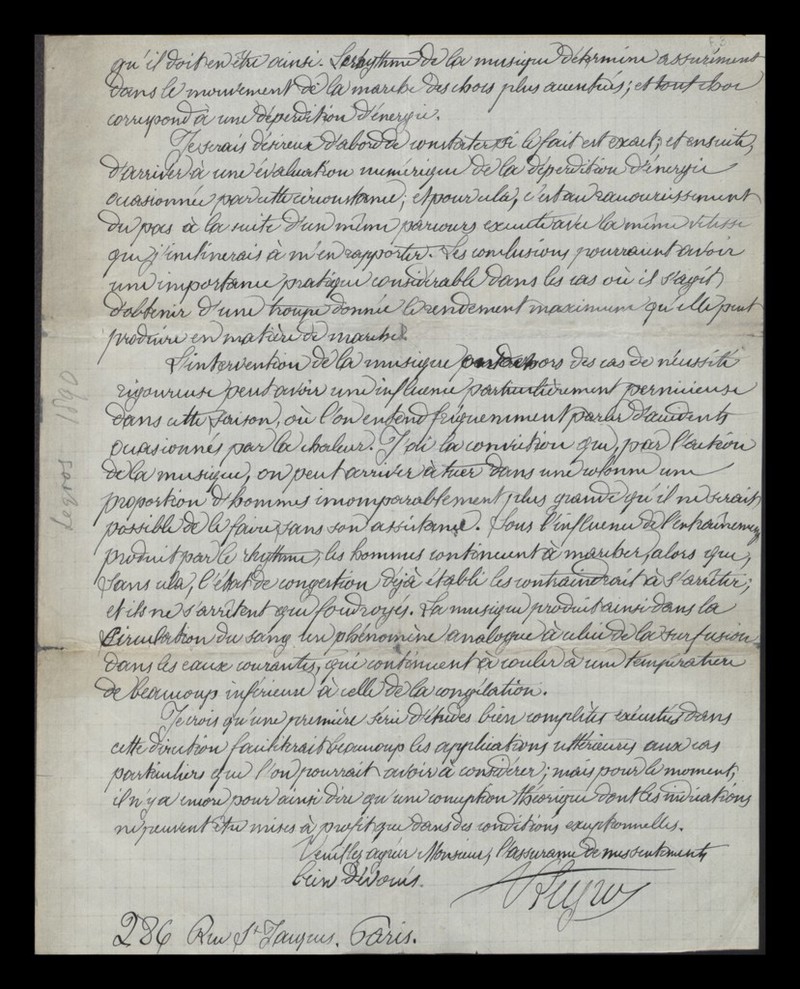 F. 3
qu'il doit en être ainsi. Le rhythme de la musique détermine assurément
dans le mouvement de la marche des chocs plus accentués; et tout choc
correspond à une déperdition d'énergie.
Je serais désireux d'abord de constater si le fait est exact, et ensuite,
d'arriver à une évaluation numérique de la déperdition d'énergie
occasionnée par cette circonstance; et pour cela, c'est au raccourcissement
du pas à la suite d'un même parcours exécuté avec la même vitesse
que j'inclinerais à m'en rapporter. Les conclusions pourraient avoir
une importance pratique considérable dans les cas où il s'agit
d'obtenir d'une troupe donnée le rendement maximum qu'elle peut
produire en matière de marche.
L'intervention de la musique en dehors des cas de nécessité
rigoureuse peut avoir une influence particulièrement pernicieuse
dans cette saison, où l'on entend fréquemment parler d'accidents
occasionnés par la chaleur. J'ai la conviction que, par l'action
de la musique, on peut arriver à tuer dans une colonne une
proportion d'hommes incomparablement plus grande qu'il ne serait
possible de le faire sans son assistance. Sous l'influence de l'entraînement
produit par le rhythme, les hommes continuent à marcher, alors que,
sans cela, l'état de congestion déjà établi les contraindrait à s'arrêter;
et ils ne s'arrêtent que foudroyés. La musique produit ainsi dans la
circulation du sang un phénomène analogue à celui de la surfusion
dans les eaux courantes, qui continuent à couler à une température
de beaucoup inférieure à celle de la congélation.
Je crois qu'une première série d'études bien complètes exécutées dans
cette direction faciliterait beaucoup les applications ultérieures aux cas
particuliers que l'on pourrait avoir à considérer; mais pour le moment,
il n'y a encore pour ainsi dire qu'une conception théorique dont les indications
ne peuvent être mises à profit que dans des conditions exceptionnelles.
Veuillez agréer Monsieur, l'assurance de mes sentiments
bien dévoués.
VLegros
286 Rue St Jacques. Paris.
Legros 1890